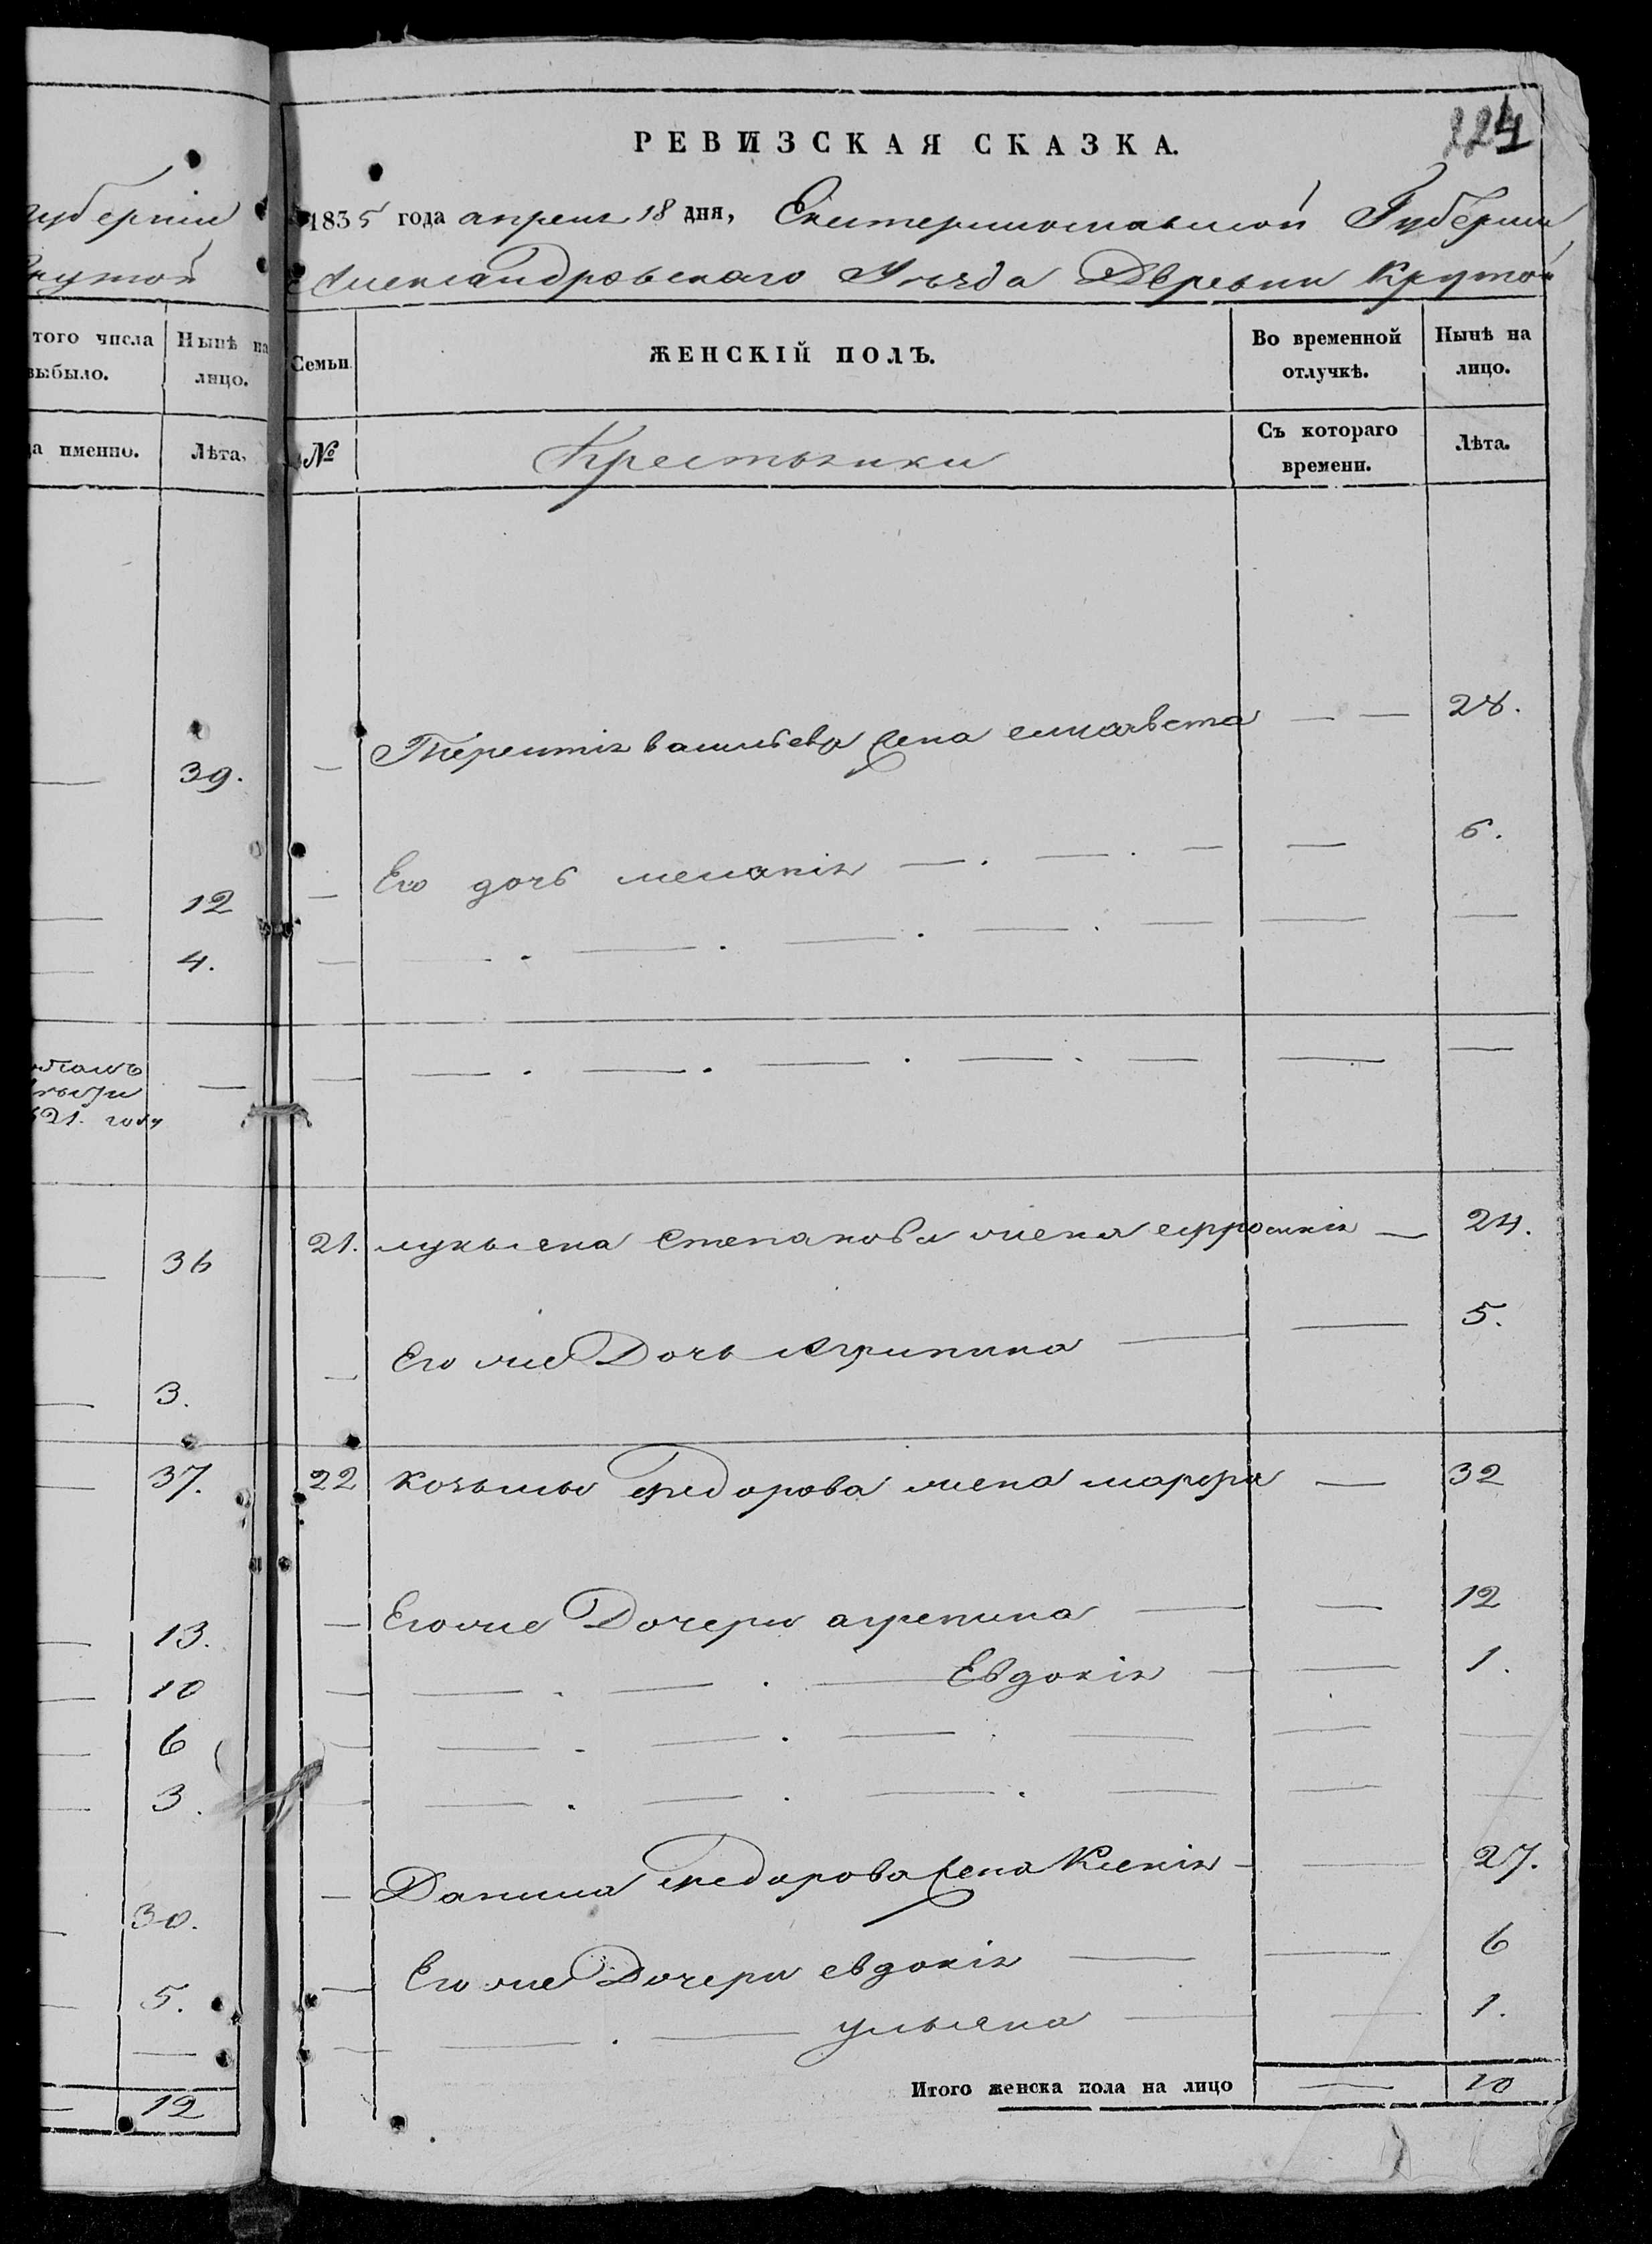 губерніи
Крутой
того числа Нынѣ на
выбыло. лицо.
да именно. Лѣта.
39.
12
4.
21. году
36
3.
37.
13.
10
6
3.
30.
5.
12
224
РЕВИЗСКАЯ СКАЗКА.
1835 года апреля 18 дня, Екатеринославской Губернии
Александровского Уезда Деревни Крутой
Семьи ЖЕНСКІЙ ПОЛЪ. Во временной отлучкѣ. Нынѣ на лицо.
№ Крестьянки Съ котораго времени. Лѣта.
— Терентія васильева жена елисавета — — 28.
— Его дочь меланія — . — . — — 6.
— — . — . — . — . — — —
— — . — . — . — . — — —
21. лукьяна степанова жена ефросинія — 24.
— Его же Дочь агрипина — — 5.
22 козьмы Федорова жена марфа — 32
— Его же Дочери агрепина — — 12
— — . — . — Евдокія — — 1.
— — . — . — . — — —
— — . — . — . — — —
— Данила Федорова жена Ксенія — — 27.
— Его же Дочери евдокія — — 6
— — . — ульяна — — 1.
Итого женска пола на лицо — 10